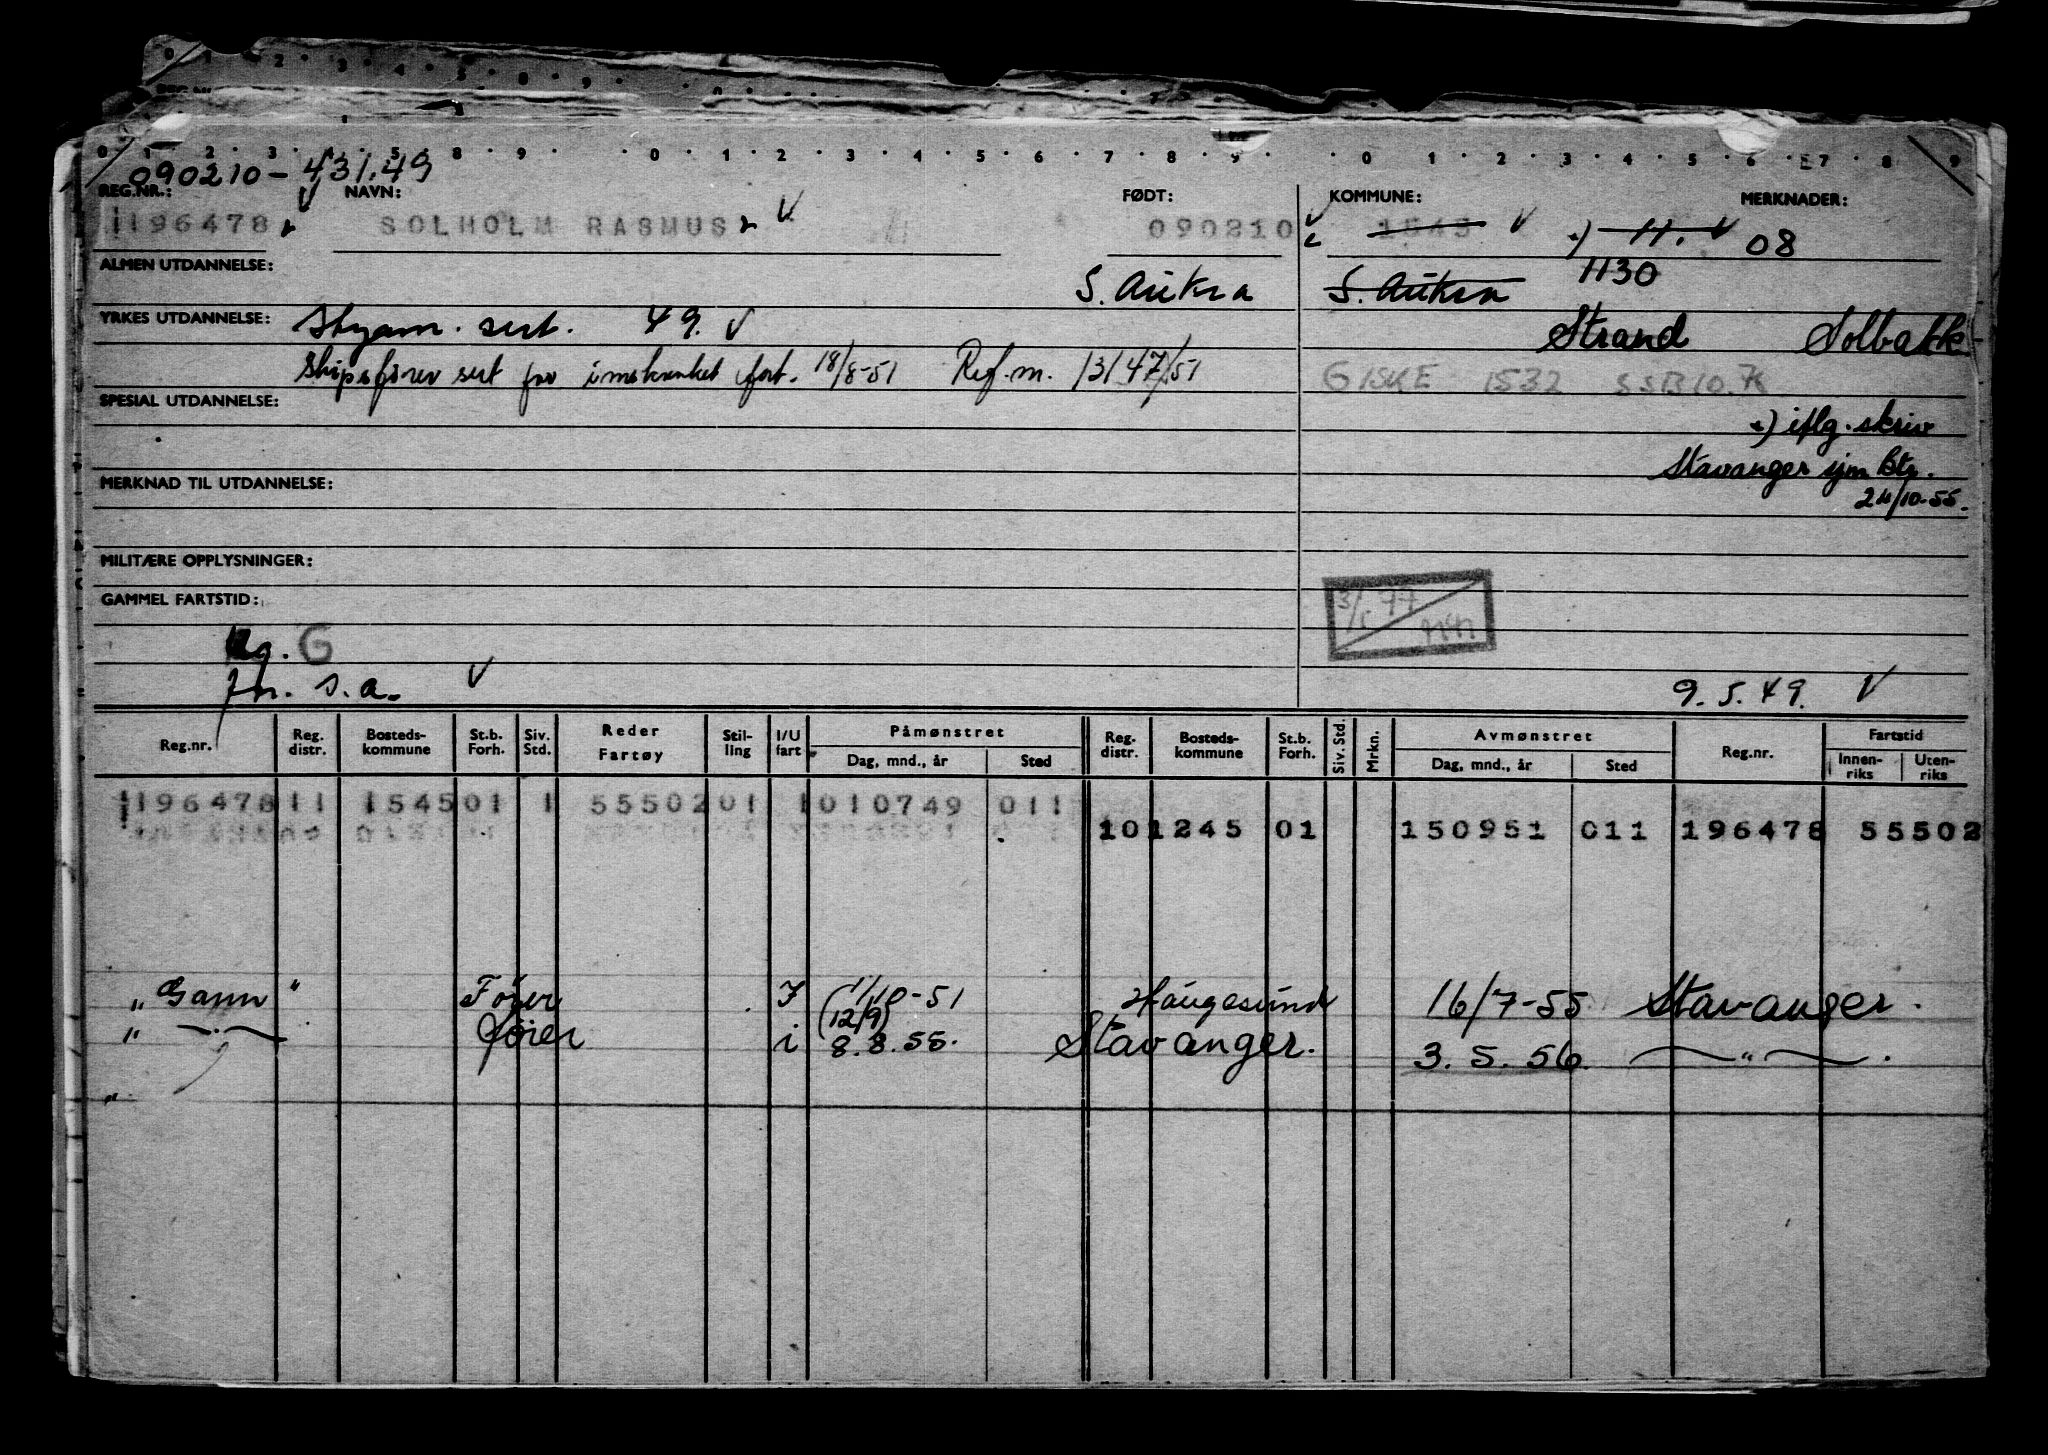 0 1 2 3 4 5 8 9 0 1 2 3 4 5 6 7 8 9 0 1 2 3 4 5 6 E7 8 9
090210-43149
REG.NR.: NAVN: FØDT: KOMMUNE: MERKNADER:
196478 SOLHOLM RASMUS 090210 1545 *) 11. 08
1130
ALMEN UTDANNELSE: S. Aukra S. Aukra
YRKES UTDANNELSE: Styrm. sert. 49. Strand Solbakk
Skipsfører sert for innskrenket fart. 18/8-51 Ref.m. 13147/51 GISKE 1532 SSB 10.7K
SPESIAL UTDANNELSE:
*) iflg. skriv
Stavanger sjm ktr.
24/10-55.
MERKNAD TIL UTDANNELSE:
MILITÆRE OPPLYSNINGER:
GAMMEL FARTSTID:
G
fn. s.a. 9.5.49.
Reg.nr. Reg. distr. Bosteds-kommune St.b. Forh. Siv. Std. Reder Fartøy Stil-ling I/U fart Påmønstret Dag, mnd., år Sted Reg. distr. Bosteds-kommune St.b. Forh. Siv. Std. Mrkn. Avmønstret Dag, mnd., år Sted Reg.nr. Fartstid Innen-riks Uten-riks
196478 11 1545 01 1 55502 01 1 010749 011
10 1245 01 150951 011 196478 55502
"Gann" Fører I 1/10-51 Haugesund 16/7-55 Stavanger.
(12/9)
" — " fører i 8.8.55. Stavanger. 3.5.56 — " — .